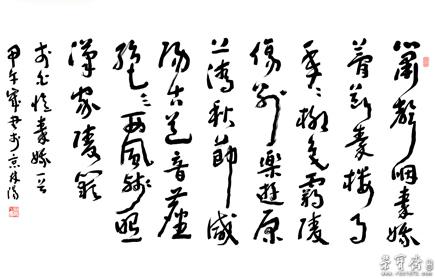 簫聲咽秦娥
夢斷秦樓月
年々柳色霸陵
傷別樂遊原
上清秋節咸
陽古道音塵
絕々西風殘照
漢家陵闕
李白憶秦娥一首
甲午
榮寶齋